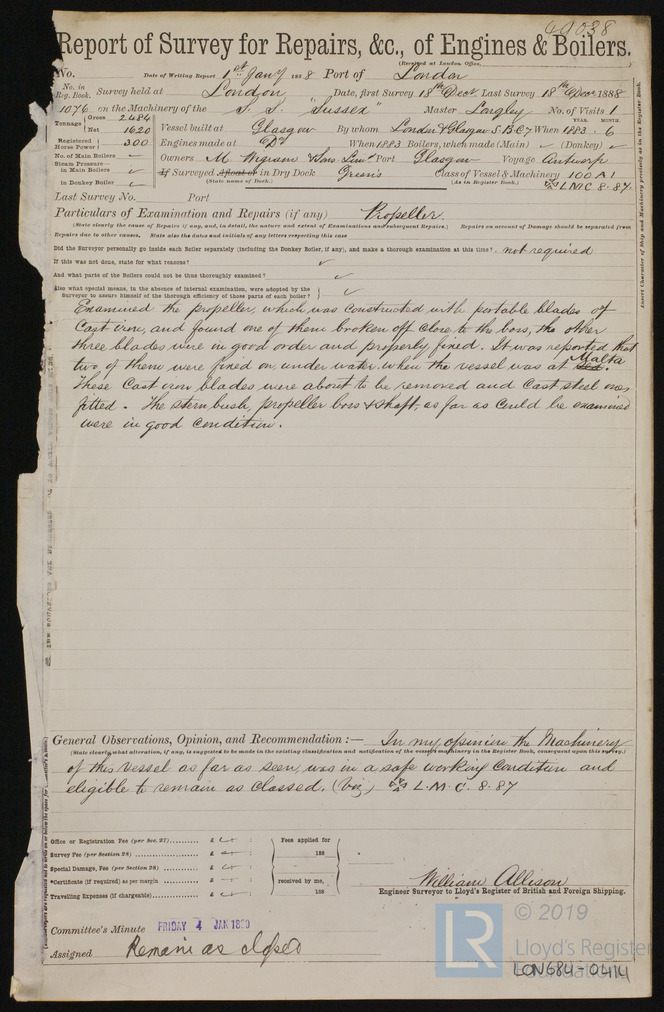 60038
Report of Survey for Repairs, &c., of Engines & Boilers.
(Received at London Office,
No. Date of Writing Report 1st Jany 1888 Port of London
No. in Reg. Book. Survey held at London Date, first Survey 18th Decr Last Survey 18th Decr 1888
1076 on the Machinery of the S. S. "Sussex" Master Longley No. of Visits 1
Tonnage Gross 2484 Net 1620
Vessel built at Glasgow By whom London & Glasgow S.B. Cy When 1883 . 6
YEAR. MONTH.
Registered Horse Power 300 Engines made at Do When 1883 Boilers, when made (Main) ✓ (Donkey) ✓
No. of Main Boilers ✓ Owners M. Wigram & Sons Limd Port Glasgow Voyage Antwerp
Steam Pressure in Main Boilers ✓ If Surveyed Afloat or in Dry Dock Green's Class of Vessel & Machinery 100 A1
(State name of Dock.) (As in Register Book.) LMC 8.87
in Donkey Boiler ✓
Last Survey No. Port
Particulars of Examination and Repairs (if any) Propeller.
(State clearly the cause of Repairs if any, and, in detail, the nature and extent of Examinations and subsequent Repairs.) Repairs on account of Damage should be separated from
Repairs due to other causes. State also the dates and initials of any letters respecting this case
Did the Surveyor personally go inside each Boiler separately (including the Donkey Boiler, if any), and make a thorough examination at this time? not required
If this was not done, state for what reasons? ✓
And what parts of the Boilers could not be thus thoroughly examined? ✓
Also what special means, in the absence of internal examination, were adopted by the
Surveyor to assure himself of the thorough efficiency of those parts of each boiler? ✓
Examined the propeller, which was constructed with portable blades of
Cast iron, and found one of them broken off close to the boss, the other
three blades were in good order and properly fixed. It was reported that
two of them were fixed on, under water when the vessel was at Malta.
These Cast iron blades were about to be removed and Cast steel ones
fitted. The stern bush, propeller boss & shaft, as far as could be examined
were in good condition.
Insert Character of Ship and Machinery precisely as in the Register Book.
General Observations, Opinion, and Recommendation :— In my opinion the Machinery
(State clearly what alteration, if any, is suggested to be made in the existing classification and notification of the vessel's machinery in the Register Book, consequent upon this survey.)
of this vessel as far as seen, was in a safe working condition and
eligible to remain as classed. (viz) L.M.C. 8.87
Office or Registration Fee (per Sec. 27) £
Survey Fee (per Section 28) £
Special Damage, Fee (per Section 28) £
*Certificate (if required) as per margin £
Travelling Expenses (if chargeable) £
Fees applied for
188
received by me,
188
William Allison
Engineer Surveyor to Lloyd's Register of British and Foreign Shipping.
Committee's Minute FRIDAY 4 JAN 1889
Assigned Remain as classed
© 2019
LR
Lloyd's Register
Foundation
LON684-0414